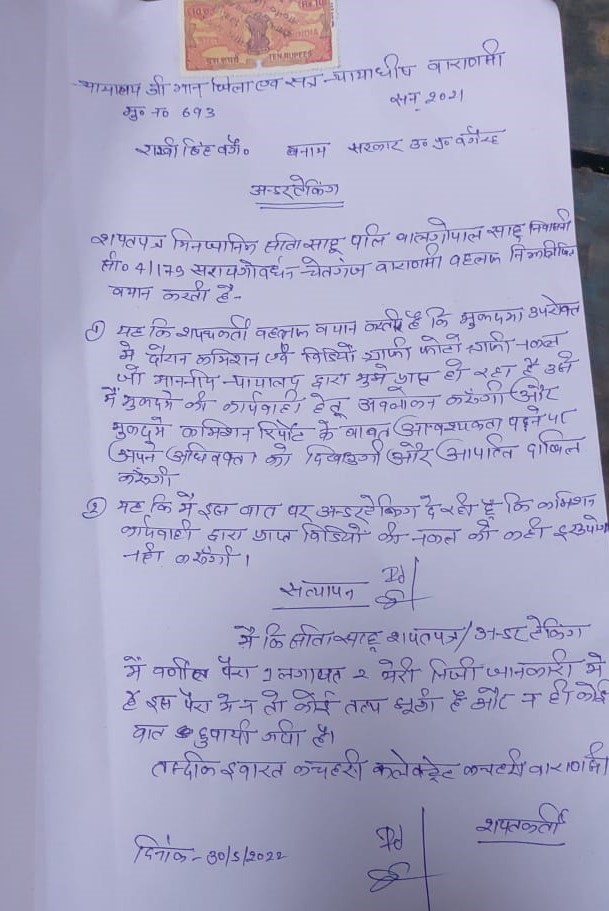 दस रुपये TEN RUPEES
INDIA
न्यायालय श्री मान जिला एवं सत्र न्यायाधीष वाराणसी
मु० न० 693 सन् 2021
राखी सिंह वगै० बनाम सरकार उ० प्र० वगैरह
अन्डरटेकिंग
शपतपत्र मिनजानिब सीता साहू पत्नि बालगोपाल साहू निवासनी
सी० 41/179 सरायगोवर्धन चेतगंज वाराणसी वहलफ निम्नलिखित
बयान करती है-
① यह कि शपथकर्ती वहलफ बयान करती है कि मुकदमा उपरोक्त
मे दौरान कमिशन एवं विडियो ग्राफी फोटो ग्राफी नकल
जो माननीय न्यायालय द्वारा मुझे प्राप्त हो रहा है उसे
मैं मुकदमे की कार्यवाही हेतू अवलोकन करूँगी और
मुकदमे कमिशन रिपोर्ट के बावत आवश्यकता पड़ने पर
अपने अधिवक्ता को दिखाऊगी और आपत्ति दाखिल
करूँगी
② यह कि मै इस बात पर अन्डरटेकिंग दे रही हूँ कि कमिशन
कार्यवाही द्वारा प्राप्त विडियो की नकल को कही दुरूपयोग
नही करूँगी।
सत्यापन
मै कि सीता साहू शपतपत्र/अन्डरटेकिंग
में वर्णित पैरा 1 लगायत 2 मेरी निजी जानकारी मे
है इस पैरा मे न तो कोई तत्य झूठा है और न ही कोई
बात छुपायी गयी है।
तस्दीक इबारत कचहरी कलेक्ट्रेट कचहरी वाराणसी
शपतकर्ती
दिनांक - 30/5/2022